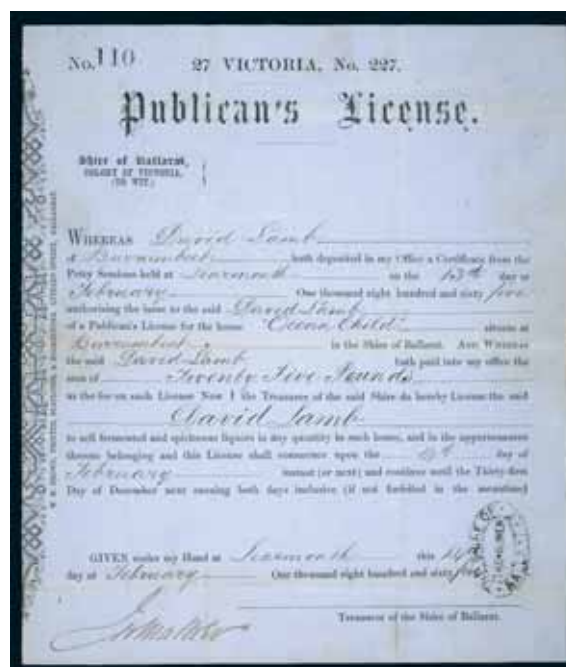 No. 110 27 VICTORIA, No. 227.
Publican's License.
Shire of Ballarat,
COLONY OF VICTORIA,
(TO WIT.)
WHEREAS David Lamb
of Burrumbeet hath deposited in my Office a Certificate from the
Petty Sessions held at Learmonth on the 13th day of
February One thousand eight hundred and sixty five
authorising the issue to the said David Lamb
of a Publican's License for the house "Ocean Child" situate at
Burrumbeet in the Shire of Ballarat. AND WHEREAS
the said David Lamb hath paid into my office the
sum of Twenty Five Pounds
as the fee on such License Now I the Treasurer of the said Shire do hereby License the said
David Lamb
to sell fermented and spirituous liquors in any quantity in such house, and in the appurtenances
thereto belonging and this License shall commence upon the day of
February instant (or next) and continue until the Thirty-first
Day of December next ensuing both days inclusive (if not forfeited in the meantime)
GIVEN under my Hand at Learmonth this 14th
day of February One thousand eight hundred and sixty five
Treasurer of the Shire of Ballarat.